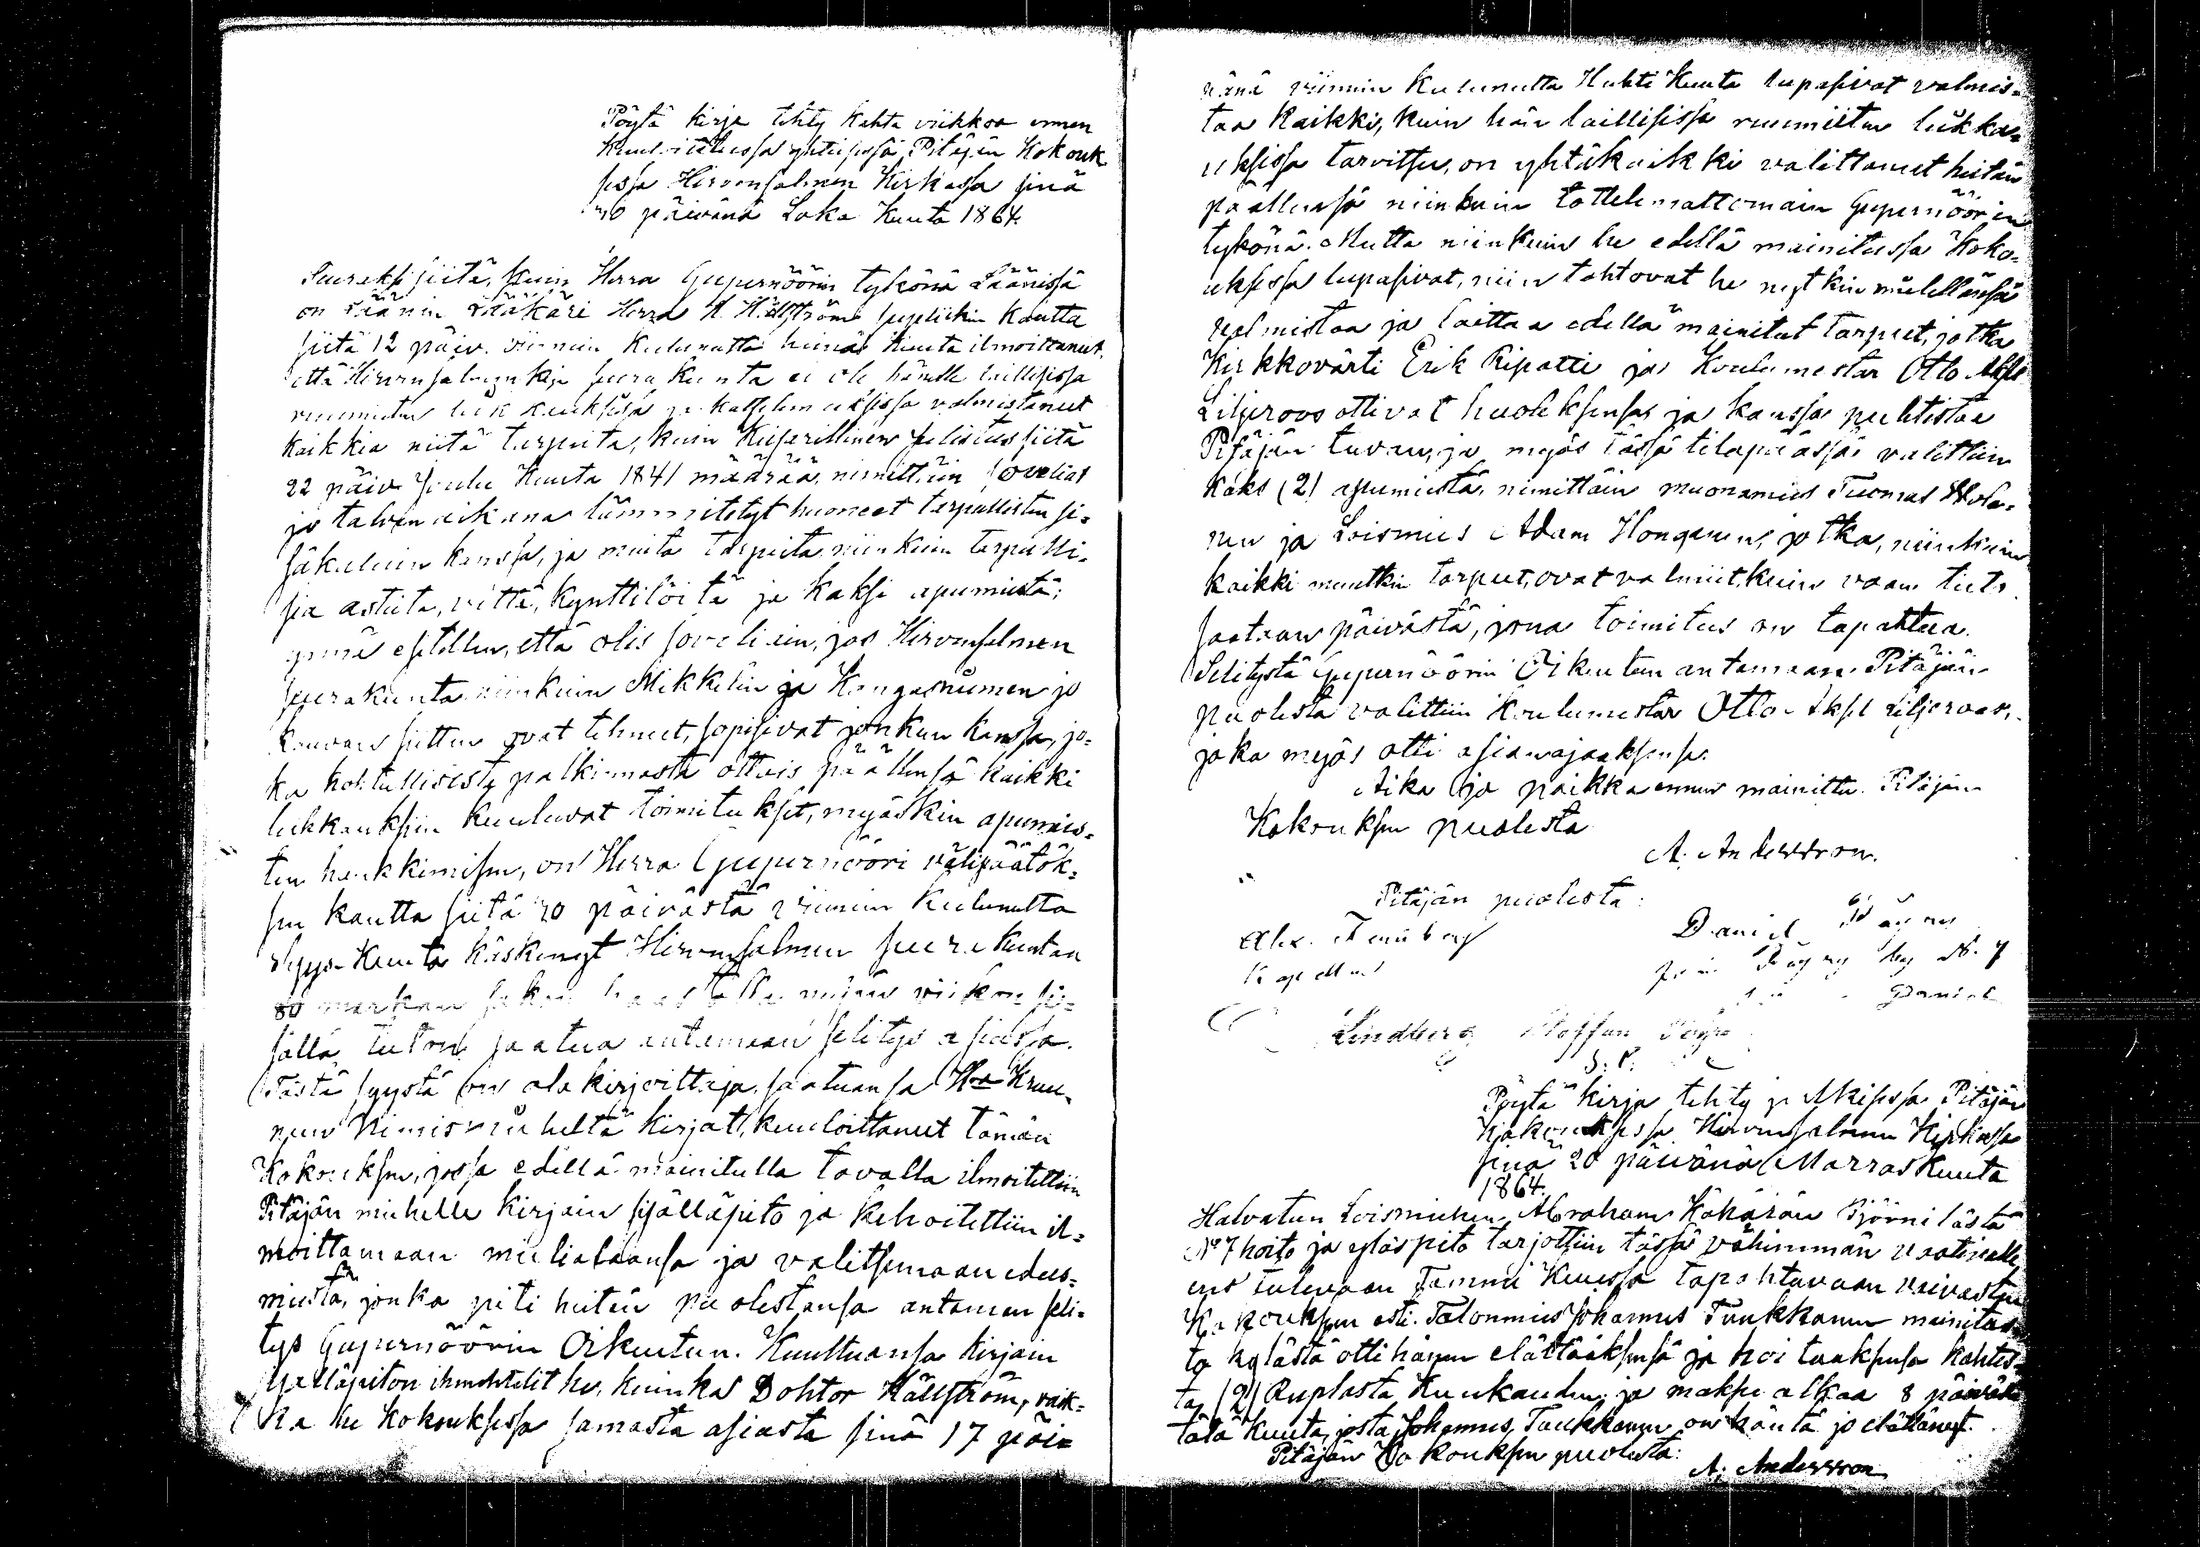 Pöytä kirja tehty kahta viikkoa ennen
kuulutetussa yhteisessä Pitäjän Kokouk
sessa Hirvensalmen Kirkossa sinä
30 päivänä Loka Kuuta 1864.
Seuraksi siitä, kuin Herra Gupernöörin tykönä Läänissä
on Läänin Lääkäri Herra H. Hällström supliikin kautta
siitä 12 päiv. viimein kulunutta heinä kuuta ilmoittanut,
että Hirvensalmen kirja seurakunta ei ole hänelle laillisissa
ruumiitten leikkauksissa ja katselemuksissa valmistanut
kaikkia niitä tarpeita, kuin Keisarillinen selistus siitä
22 päiv. Joulu Kuuta 1841 määrää, nimittäin soveliat
ja talven aikana lämmitetyt huoneet tarpellisten si-
säkaluin kanssa, ja muita tarpeita niinkuin tarpelli-
sia astiita, vettä, kynttilöitä ja kaksi apumiestä;
ynnä esitellen, että olis soveliain, jos Hirvensalmen
seurakunta niinkuin Mikkelin ja Kangasniemen jo
kauvan sitten ovat tehneet, sopisivat jonkun kanssa, jo-
ka kohtullisesta palkinnosta ottais päällensä kaikki
leikkauksiin kuuluvat toimitukset, myöskin apumies-
ten hankkimisen, on Herra Gupernööri välipäätök-
sen kautta siitä 20 päivästä viimein kulunutta
Syys-Kuuta käskenyt Hirvensalmen seurakuntaa
80 markan sakon haastolla neljän viikon si-
sällä tietoa saatua antamaan selitys asiassa.
Tästä syystä on alakirjoittaja, saatuansa Kruu-
nun Nimismieheltä kirjat, kuuloittanut tämän
Kokouksen, jossa edellä mainitulla tavalla ilmoitettiin
Pitäjän miehelle kirjain sisälläpito ja kehoitettiin il-
moittamaan mielialaansa ja valitsemaan edus-
miestä, jonka piti heitän puolestansa antaman seli-
tys Gupernöörin Oikeuteen. Kuultuansa kirjain
sisälläpiton ihmehtelit he, kuinka Dohtor Hällström, vaik-
ka he kokouksessa samasta asiasta sinä 17 päi-
vänä viimein kulunutta Huhti Kuuta lupasivat valmis-
taa kaikki, kuin hän laillisissa ruumiitten leikka-
uksissa tarvitsee, on yhtäkaikki valittanut heitän
päällensä niinkuin tottelemattomain Gupernöörin
tykönä. Mutta niinkuin he edellä mainitussa Koko-
uksessa lupasivat, niin tahtovat he nytkin mielellänsä
valmistaa ja laittaa edellä mainitut tarpeet, jotka
Kirkkovärti Erik Ripatti ja Koulumestar Otto Aksel
Liljeroos ottivat huoleksensa ja kanssa puhtistaa
Pitäjän tuvan, ja myös tässä tilapäässä valittiin
kaks (2) apumiestä, nimittäin muonamies Tuomas
nen ja Loismies Adam Honganen, jotka, niinkuin
kaikki muutkin tarpeet, ovat valmiit, kuin vaan tieto
saataan päivästä, jona toimitus on tapahtuva.
Selitystä Gupernöörin Oikeuteen antamaan Pitäjän
puolesta valittiin Koulumestar Otto Aksel Liljeroos,
joka myös otti asianajaaksensa.
Aika ja paikka ennen mainittu. Pitäjän
Kokouksen puolesta
A. Andersson.
Pitäjän puolesta:
Alex. Daniel
Kapellan
Lindberg Staffan
Pöytä kirja tehty ja Pitäjän
Kokouksessa Hirvensalmen Kirkossa
sinä 20 päivänä Marraskuuta
1864.
Halvatun Loismiehen Abraham Häkäsän Pjörnilästä
No 7 hoito ja ylöspito tarjottiin tässä vähimmän vaativalle
ens tulevaan Tammi Kuussa tapahtuvaan vaivasten
Kokouksen asti. Talonmies Johannes Tuukkanen mainitus-
ta kylästä otti hänen elättääksensä ja hoitaaksensa kahtes-
ta (2) Ruplasta Kuukauden, ja maksu alkaa 8 päivästä
tätä kuuta, josta Johannes Tuukkanen on häntä jo elättänyt.
Pitäjän Kokouksen puolesta:
A. Andersson